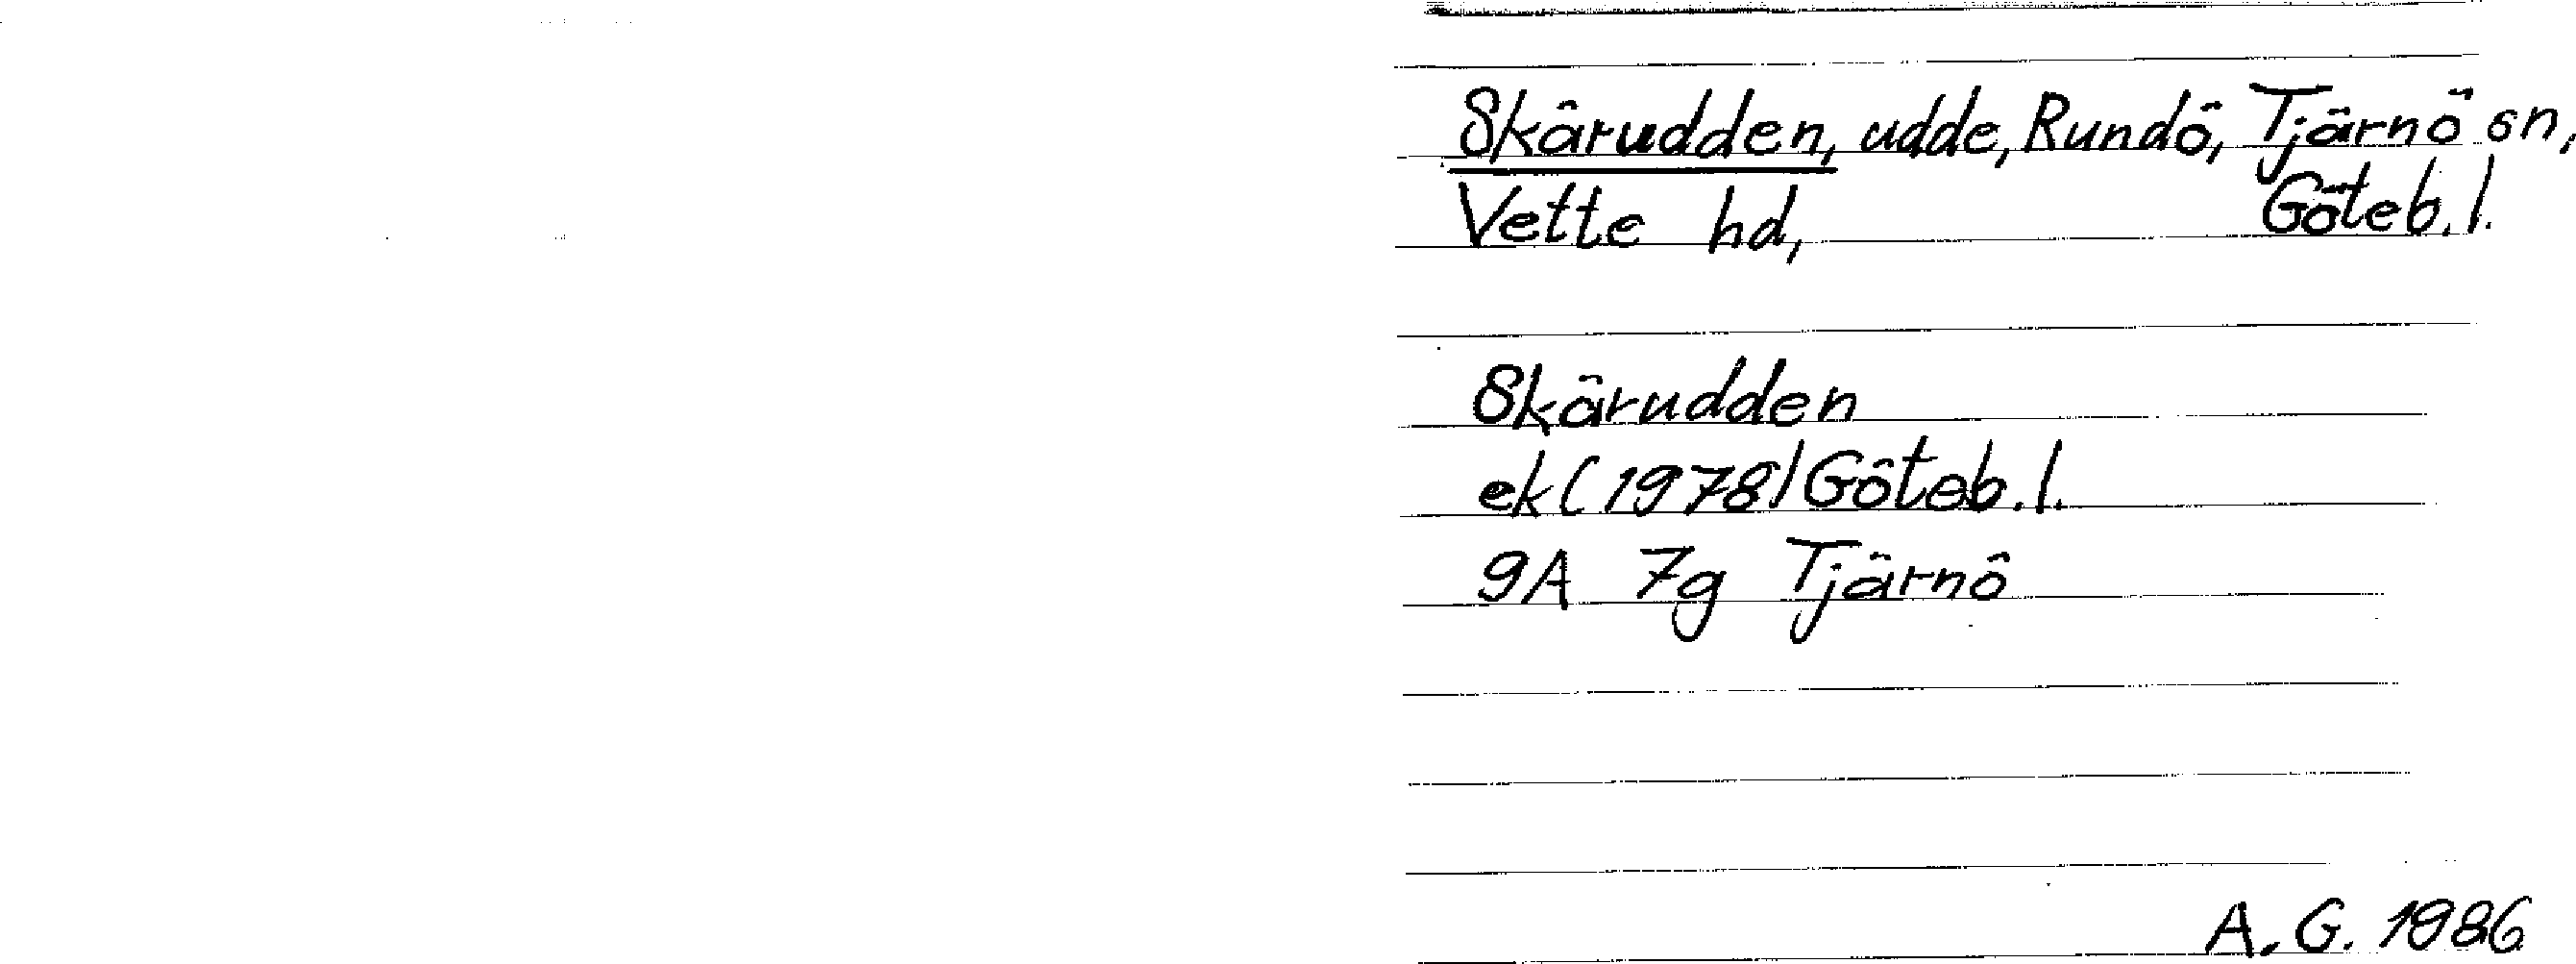 Skärudden, udde, Rundö, Tjärnö sn,
Vette hd, Göteb. l.
Skärudden
ek (1978) Göteb. l.
9A 7g Tjärnö
A. G. 1986